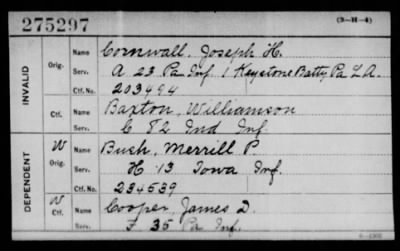 275297 (3-H-4)
INVALID
Orig. Name Cornwall, Joseph H.
Serv. A 23 Pa Inf. 1 Keystone Batty Pa L A.
Ctf. No. 203494
Ctf. Name Baxton, Williamson
Serv. C 82 Ind Inf
DEPENDENT
W Orig. Name Bush, Merrill P.
Serv. H. 13 Iowa Inf.
Ctf. No. 234539
W Ctf. Name Cooper, James D.
Serv. F 35 Pa Inf.